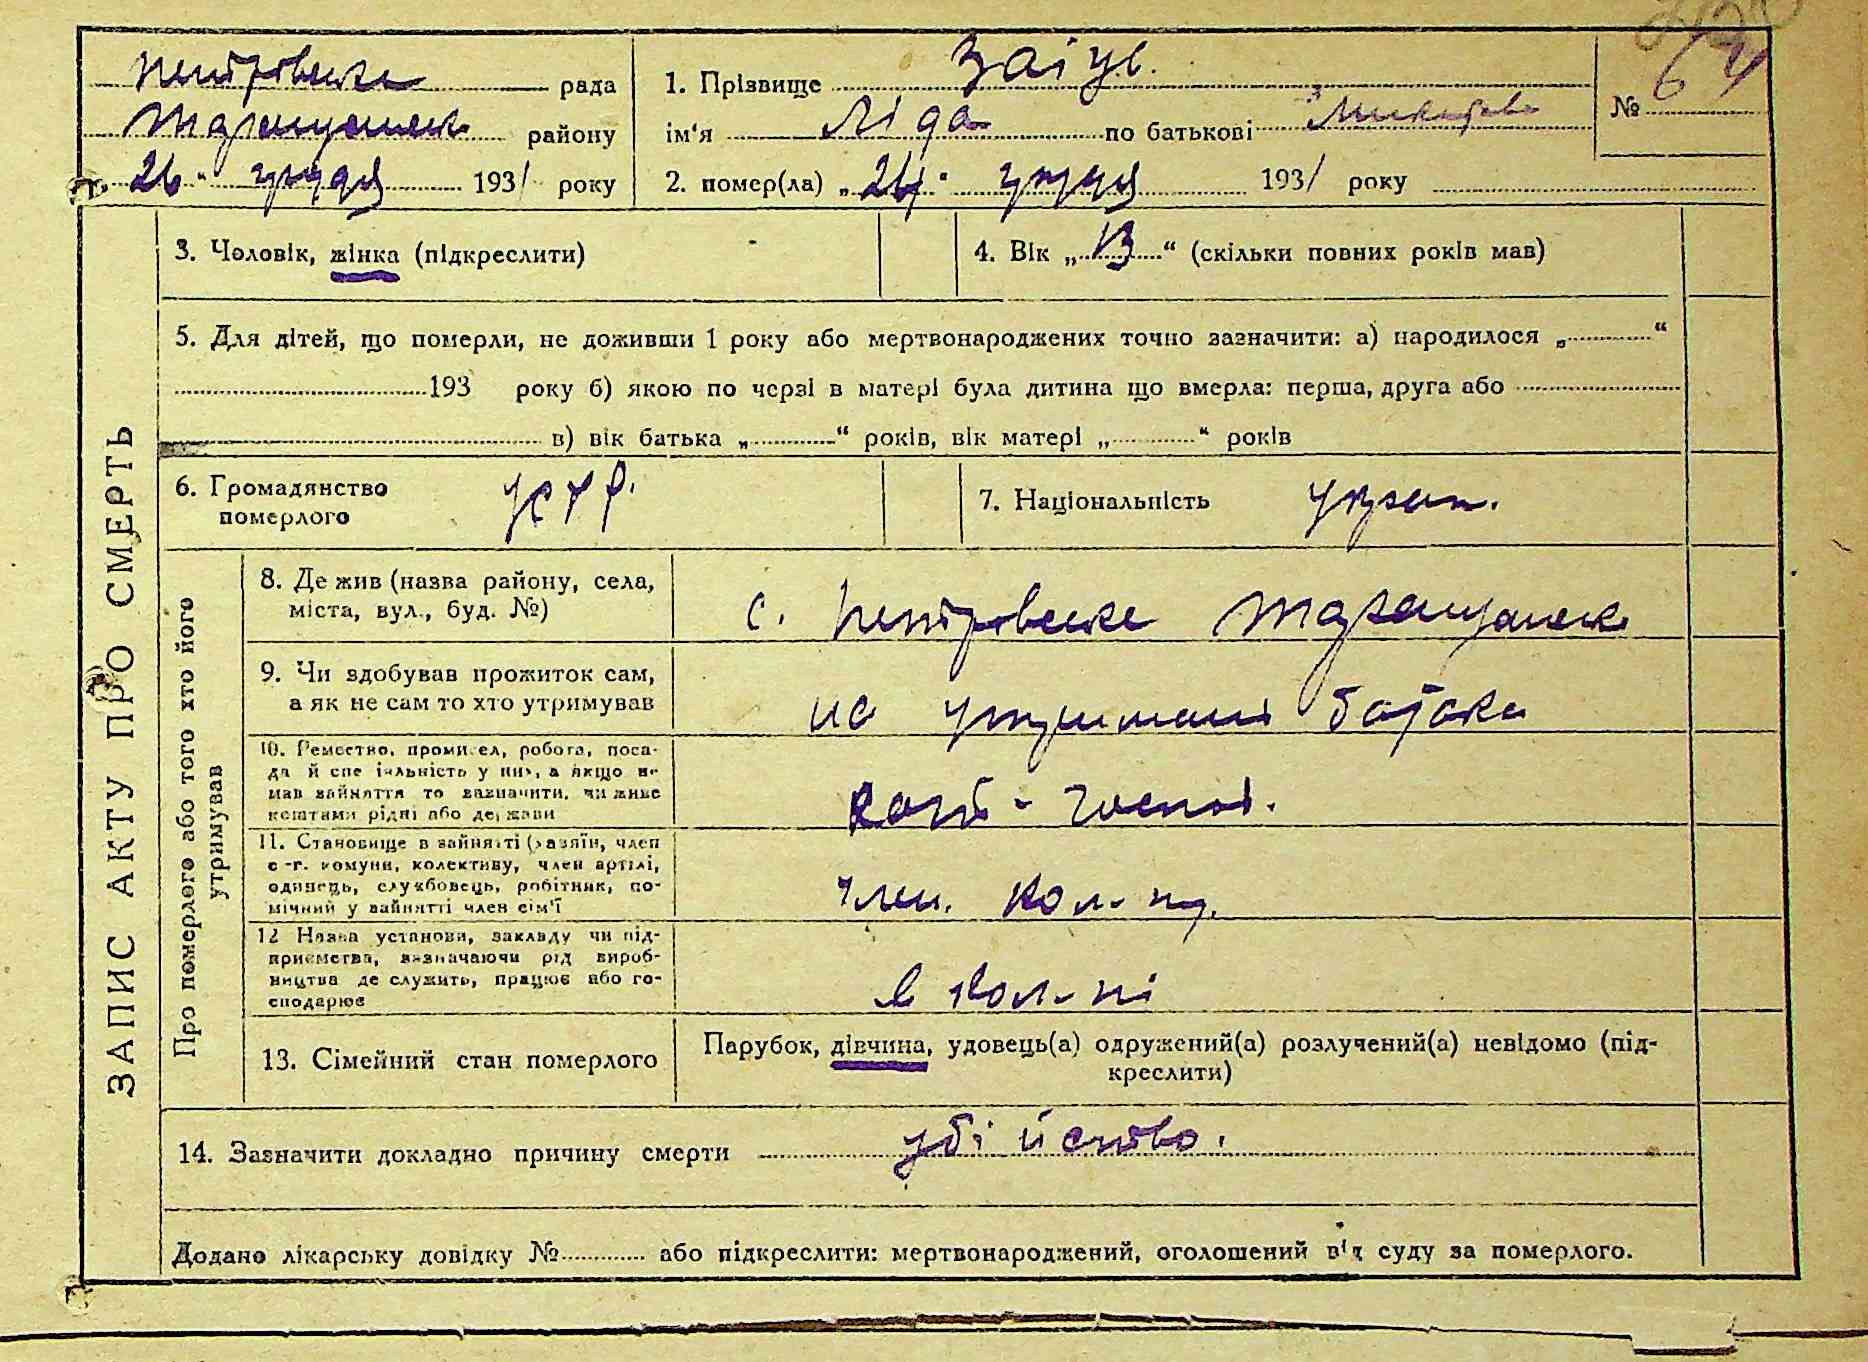 Петрівська рада
Таращанськ району
26 грудня 1931 року
1. Прізвище Заіць.
ім'я Ліда по батькові
2. помер(ла) „24" грудня 1931 року
№ 64
ЗАПИС АКТУ ПРО СМЕРТЬ
3. Чоловік, жінка (підкреслити)
4. Вік „13" (скільки повних років мав)
5. Для дітей, що померли, не доживши 1 року або мертвонароджених точно зазначити: а) народилося „ "
193 року б) якою по черзі в матері була дитина що вмерла: перша, друга або
в) вік батька „ " років, вік матері „ " років
6. Громадянство
померлого
УСРР.
7. Національність украи.
Про померлого або того хто його
утримував
8. Де жив (назва району, села,
міста, вул., буд. №)
с. Петрівське Таращанськ
9. Чи здобував прожиток сам,
а як не сам то хто утримував
на утриманні батька
10. Ремество, промисел, робота, поса-
да й спеціяльність у них, а якщо не
мав зайняття то зазначити, чи живе
коштами рідні або держави
11. Становище в зайнятті (хазяїн, член
с.-г. комуни, колективу, член артілі,
одинець, службовець, робітник, по-
мічний у зайнятті член сім'ї
член. кол-пу.
12 Назва установи, закладу чи під-
приємства, визначаючи рід вироб-
ництва де служить, працює або го-
сподарює
в кол-пі
13. Сімейний стан померлого
Парубок, дівчина, удовець(а) одружений(а) розлучений(а) невідомо (під-
креслити)
14. Зазначити докладно причину смерти убійство.
Додано лікарську довідку № або підкреслити: мертвонароджений, оголошений від суду за померлого.